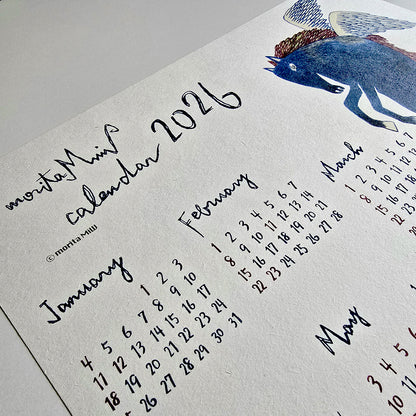 morita MiiW
calendar 2026
© morita MiiW
January
1 2 3
4 5 6 7 8 9 10
11 12 13 14 15 16 17
18 19 20 21 22 23 24
25 26 27 28 29 30 31
February
1 2 3 4 5 6 7
8 9 10 11 12 13 14
15 16 17 18 19 20 21
22 23 24 25 26 27 28
March
1 2 3
8 9 10
15 16
22
May
3
10